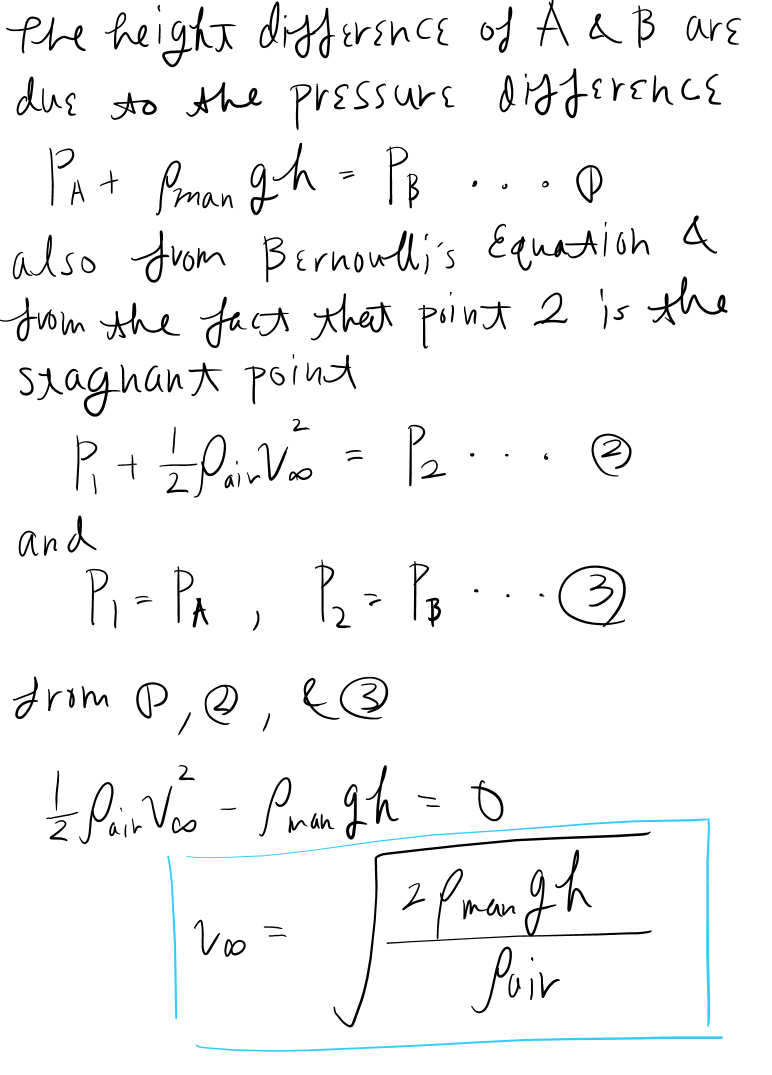 the height difference of A & B are
due to the pressure difference
P_A + ρ_man gh = P_B .... ①
also from Bernoulli's Equation &
from the fact that point 2 is the
stagnant point
P₁ + 1/2 ρ_air V_∞² = P₂ ... ②
and
P₁ = P_A , P₂ = P_B ... ③
from ①, ②, & ③
1/2 ρ_air V_∞² - ρ_man gh = 0
v_∞ = √(2 ρ_man gh / ρ_air)